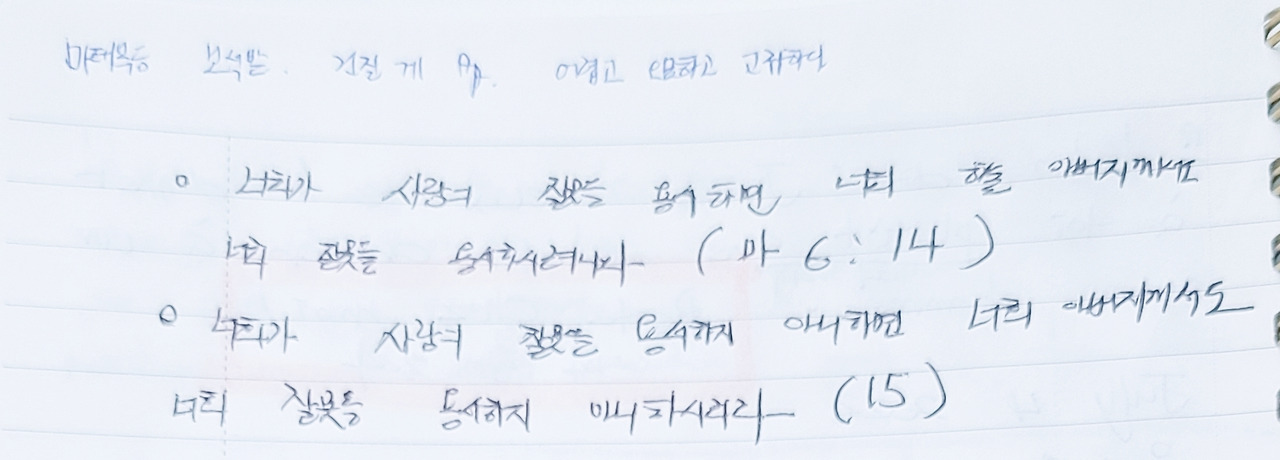 마태복음 보석발. 건질 게 Ap. 어렵고 오묘하고 고귀하다
○ 너희가 사람의 잘못을 용서하면 너희 하늘 아버지께서도
너희 잘못을 용서하시려니와 (마 6:14)
○ 너희가 사람의 잘못을 용서하지 아니하면 너희 아버지께서도
너희 잘못을 용서하지 아니하시리라 (15)